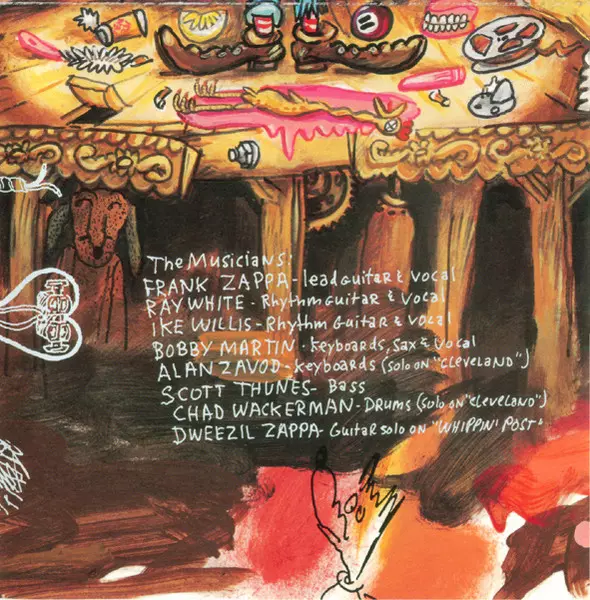 The Musicians:
FRANK ZAPPA - lead guitar & vocal
RAY WHITE - Rhythm Guitar & Vocal
IKE WILLIS - Rhythm Guitar & Vocal
BOBBY MARTIN - keyboards, sax & vocal
ALAN ZAVOD - keyboards (solo on "CLEVELAND")
SCOTT THUNES - Bass
CHAD WACKERMAN - Drums (solo on "CLEVELAND")
DWEEZIL ZAPPA - Guitar solo on "WHIPPIN' POST"